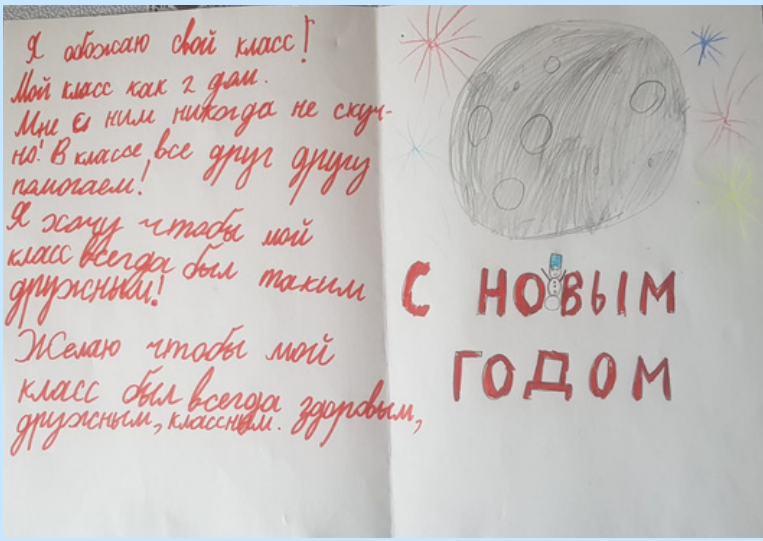 Я обожаю свой класс!
Мой класс как 2 дом.
Мне с ним никогда не скуч-
но! В классе все друг другу
памогаем!
Я хочу чтобы мой
класс всегда был таким
дружным!
Желаю чтобы мой
класс был всегда здоровым,
дружным, классным.
С НОВЫМ
ГОДОМ